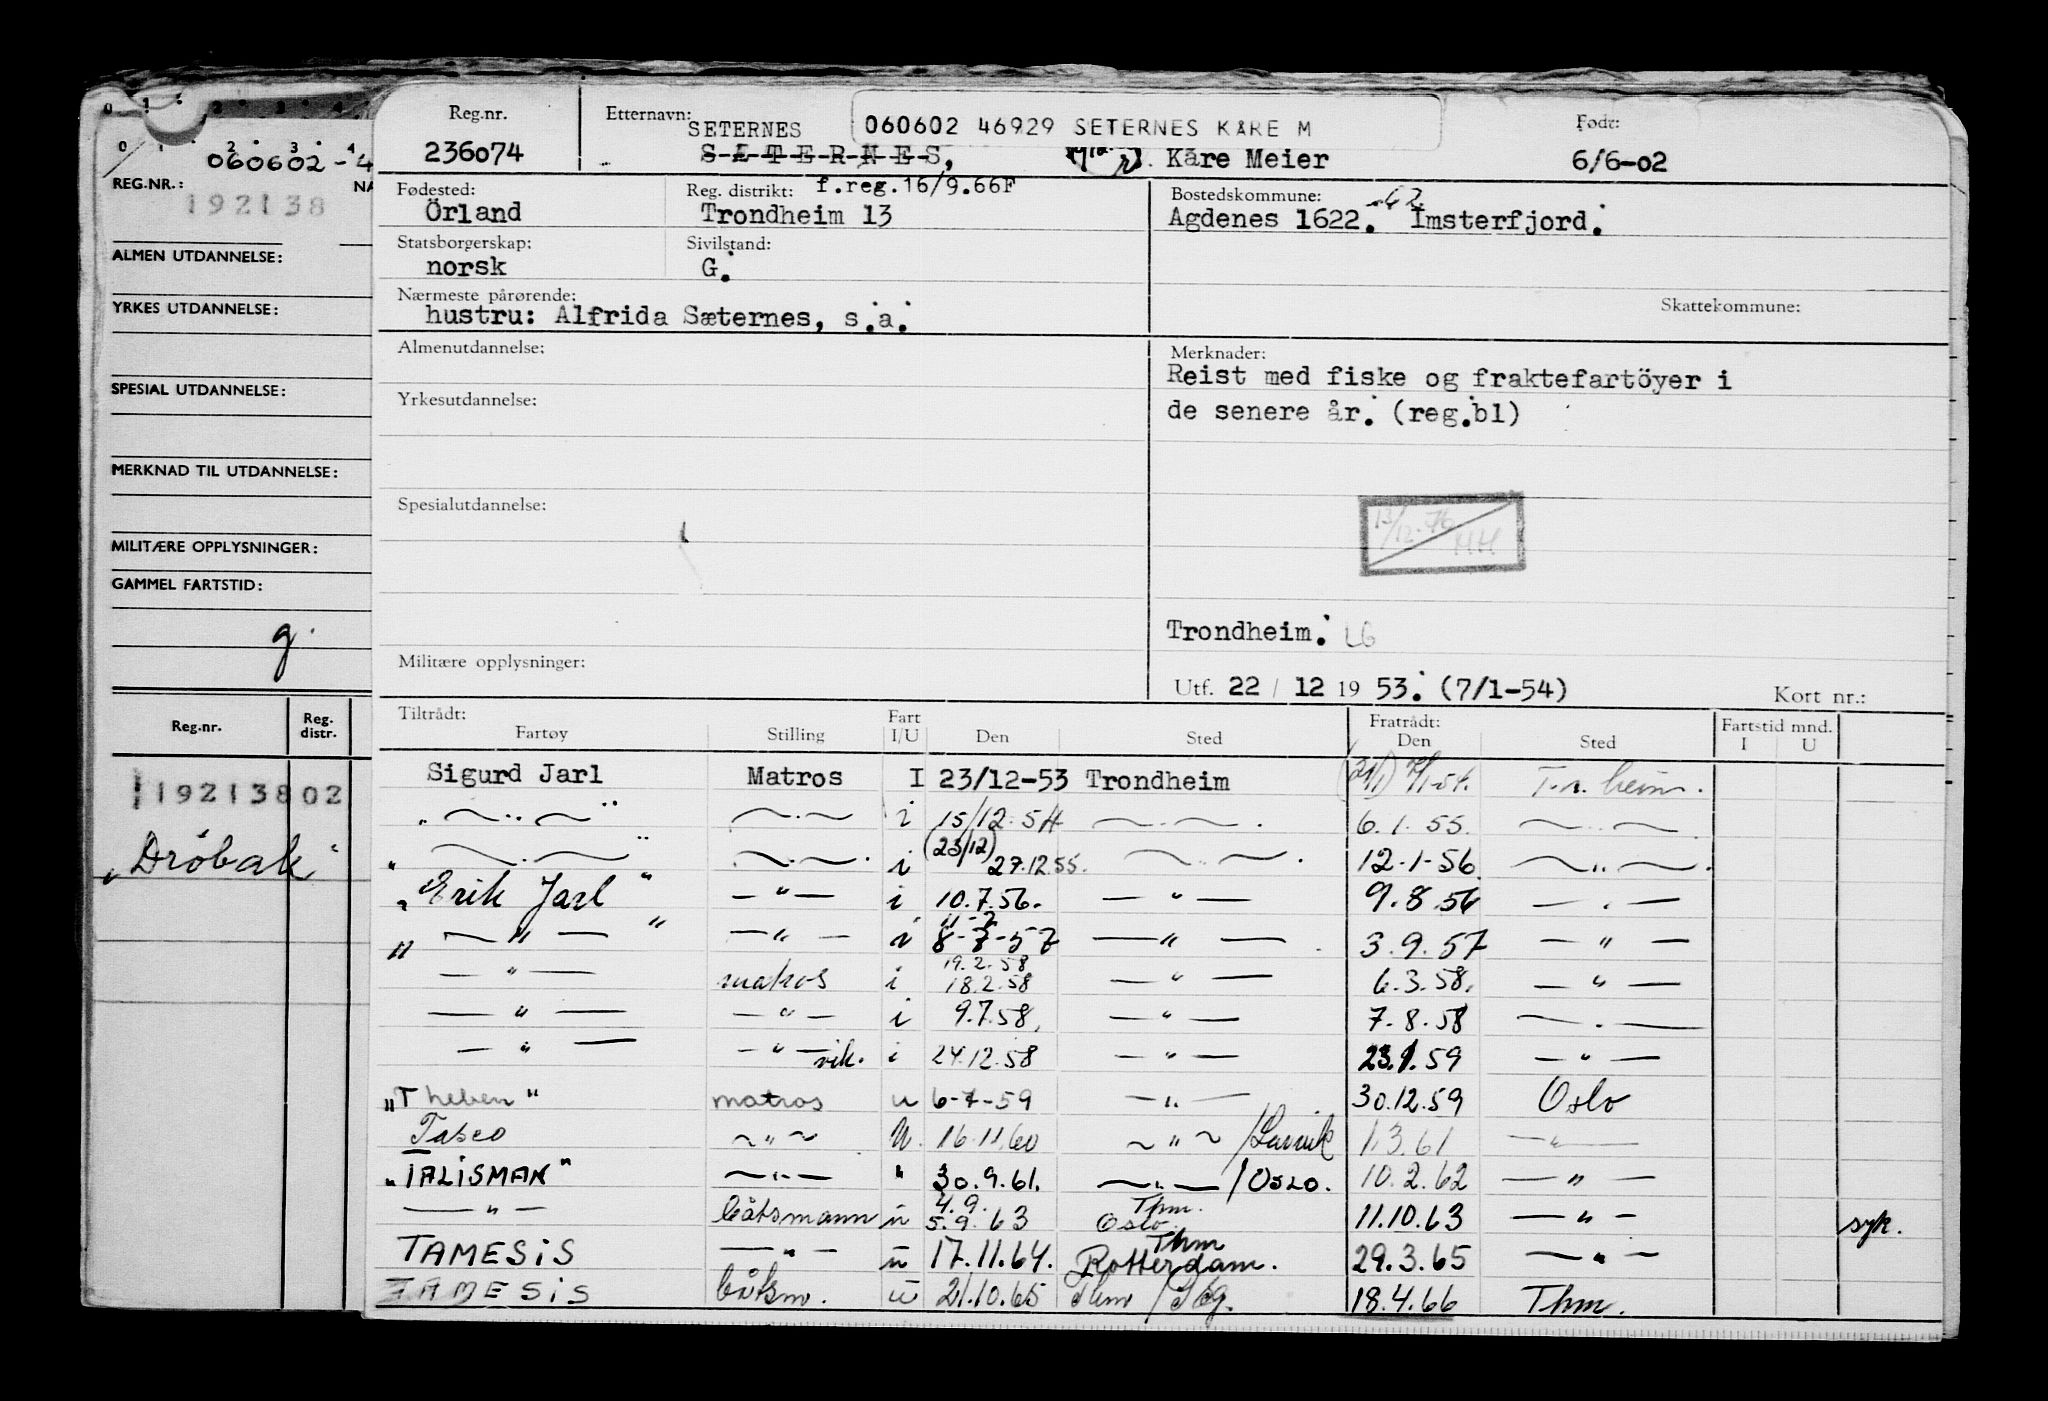 0 1 2 3 4
0 1 2 3 4
060602-4
REG.NR.: NA
192138
ALMEN UTDANNELSE:
YRKES UTDANNELSE:
SPESIAL UTDANNELSE:
MERKNAD TIL UTDANNELSE:
MILITÆRE OPPLYSNINGER:
GAMMEL FARTSTID:
g.
Reg.nr. Reg. distr.
19213802
"Drøbak"
Reg.nr. Etternavn: Født:
SETERNES 060602 46929 SETERNES KÅRE M
236074 S-Æ-T-E-R-N-E-S, Kåre Meier 6/6-02
Fødested: Reg. distrikt: f.reg.16/9.66F Bostedskommune:
Örland Trondheim 13 Agdenes 1622. Imsterfjord.
Statsborgerskap: Sivilstand:
norsk G.
Nærmeste pårørende: Skattekommune:
hustru: Alfrida Sæternes, s.a.
Almenutdannelse: Merknader:
Reist med fiske og fraktefartöyer i
Yrkesutdannelse: de senere år. (reg.bl)
Spesialutdannelse:
13/12-76 HH
Trondheim. LG
Militære opplysninger:
Utf. 22 / 12 19 53. (7/1-54) Kort nr.:
Tiltrådt: Fart Fratrådt: Fartstid mnd.
Fartøy Stilling I/U Den Sted Den Sted I U
Sigurd Jarl Matros I 23/12-53 Trondheim (21/1) 1-54. Tr.heim.
" — " — " — " — i 15/12.54 — " — . 6.1.55. — " — .
" — " — " — " — . i (23/12) 27.12.55. — " — . 12-1-56. — " — .
"Erik Jarl" — " — i 10.7.56. — " — 9.8.56 — " —
" — " — " — " — i 11-7 8-7-57 — " — . 3.9.57 — " —
— " — matros i 19.2.58 18.2.58 — " — 6.3.58. — " —
— " — — " — i 9.7.58. — " — 7.8.58 — " —
— " — — " — vik. i 24.12.58 — " — 23.1.59 — " —
"Theben" matros u 6-7-59 — " — 30.12.59 Oslo
Tasco — " — U. 16.11.60 — " — /Larvik 1.3.61 — " —
"TALISMAN" — " — " 30.9.61. — " — /OSLO. 10.2.62 — " —
— " — båtsmann u 4.9. 5.9.63 Thm. Oslo. 11.10.63 — " — syk.
TAMESIS — " — u 17.11.64. Thm Rotterdam. 29.3.65 — " —
TAMESIS båtsm. u 21.10.65 Thm / 18.4.66 Thm.